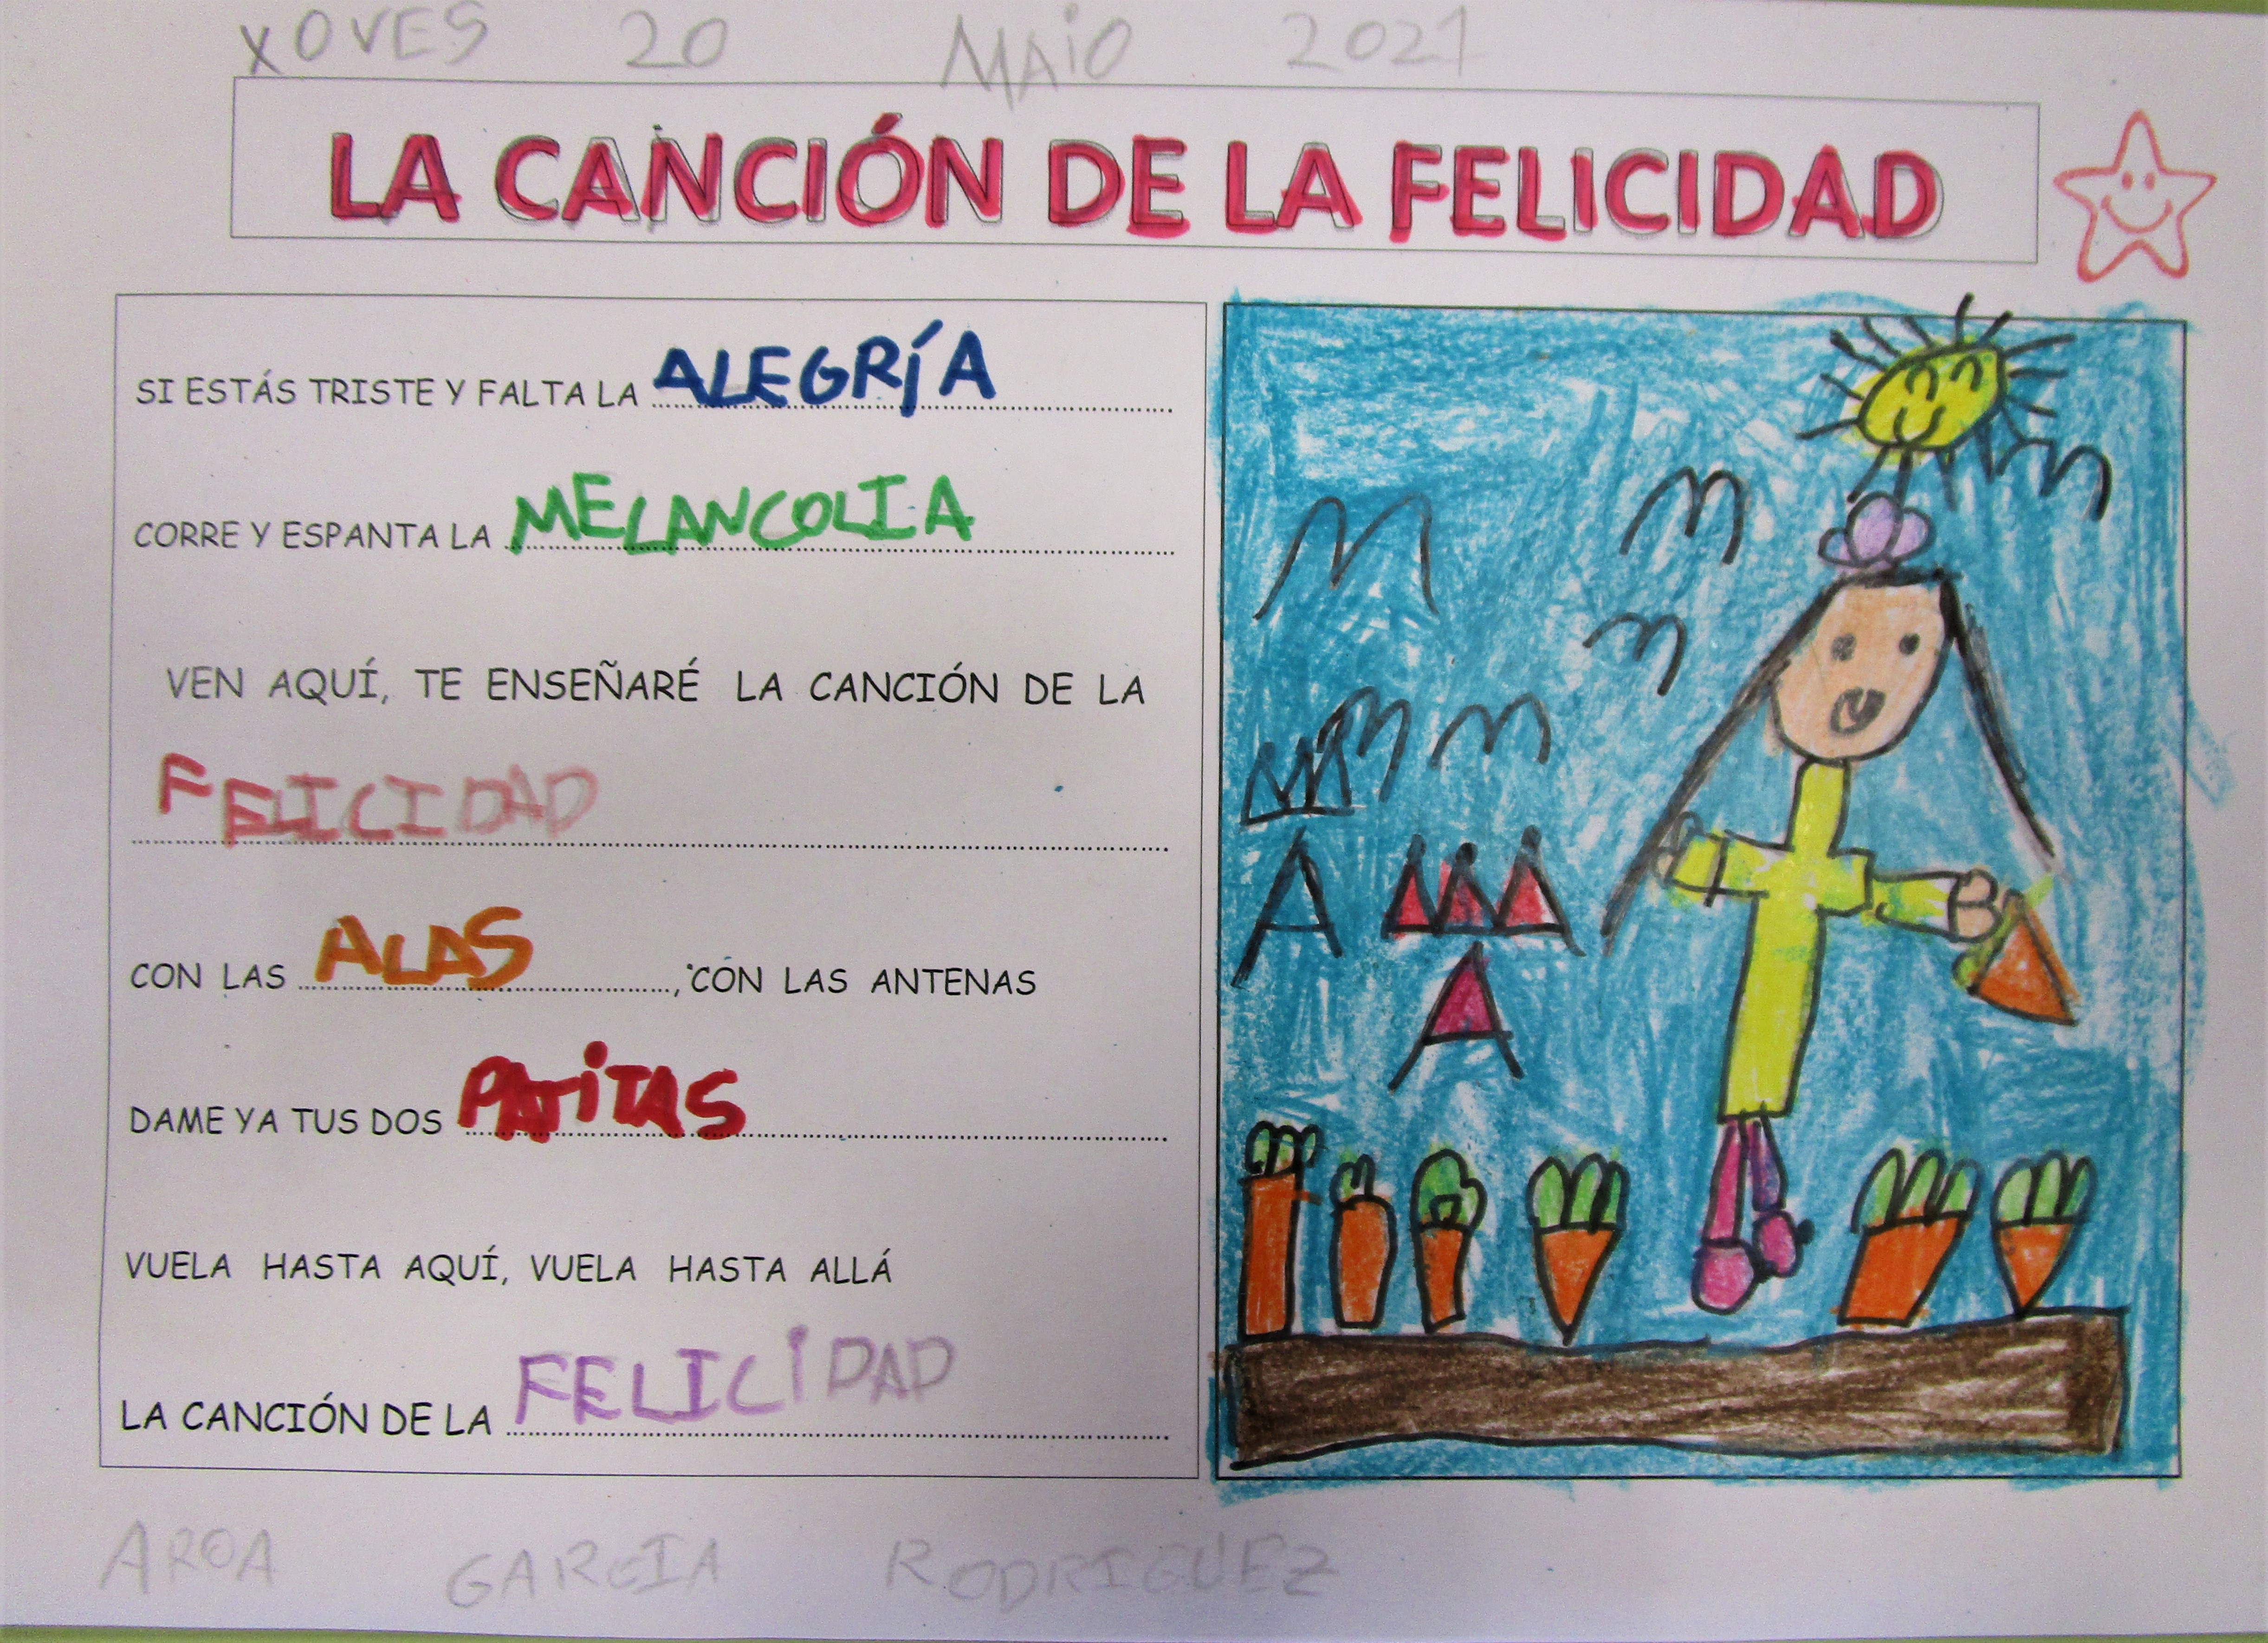 XOVES 20 MAIO 2021
LA CANCIÓN DE LA FELICIDAD
SI ESTÁS TRISTE Y FALTA LA ALEGRÍA
CORRE Y ESPANTA LA MELANCOLIA
VEN AQUÍ, TE ENSEÑARÉ LA CANCIÓN DE LA
FELICIDAD
CON LAS ALAS, CON LAS ANTENAS
DAME YA TUS DOS PATITAS
VUELA HASTA AQUÍ, VUELA HASTA ALLÁ
LA CANCIÓN DE LA FELICIDAD
AROA GARCIA RODRIGUEZ